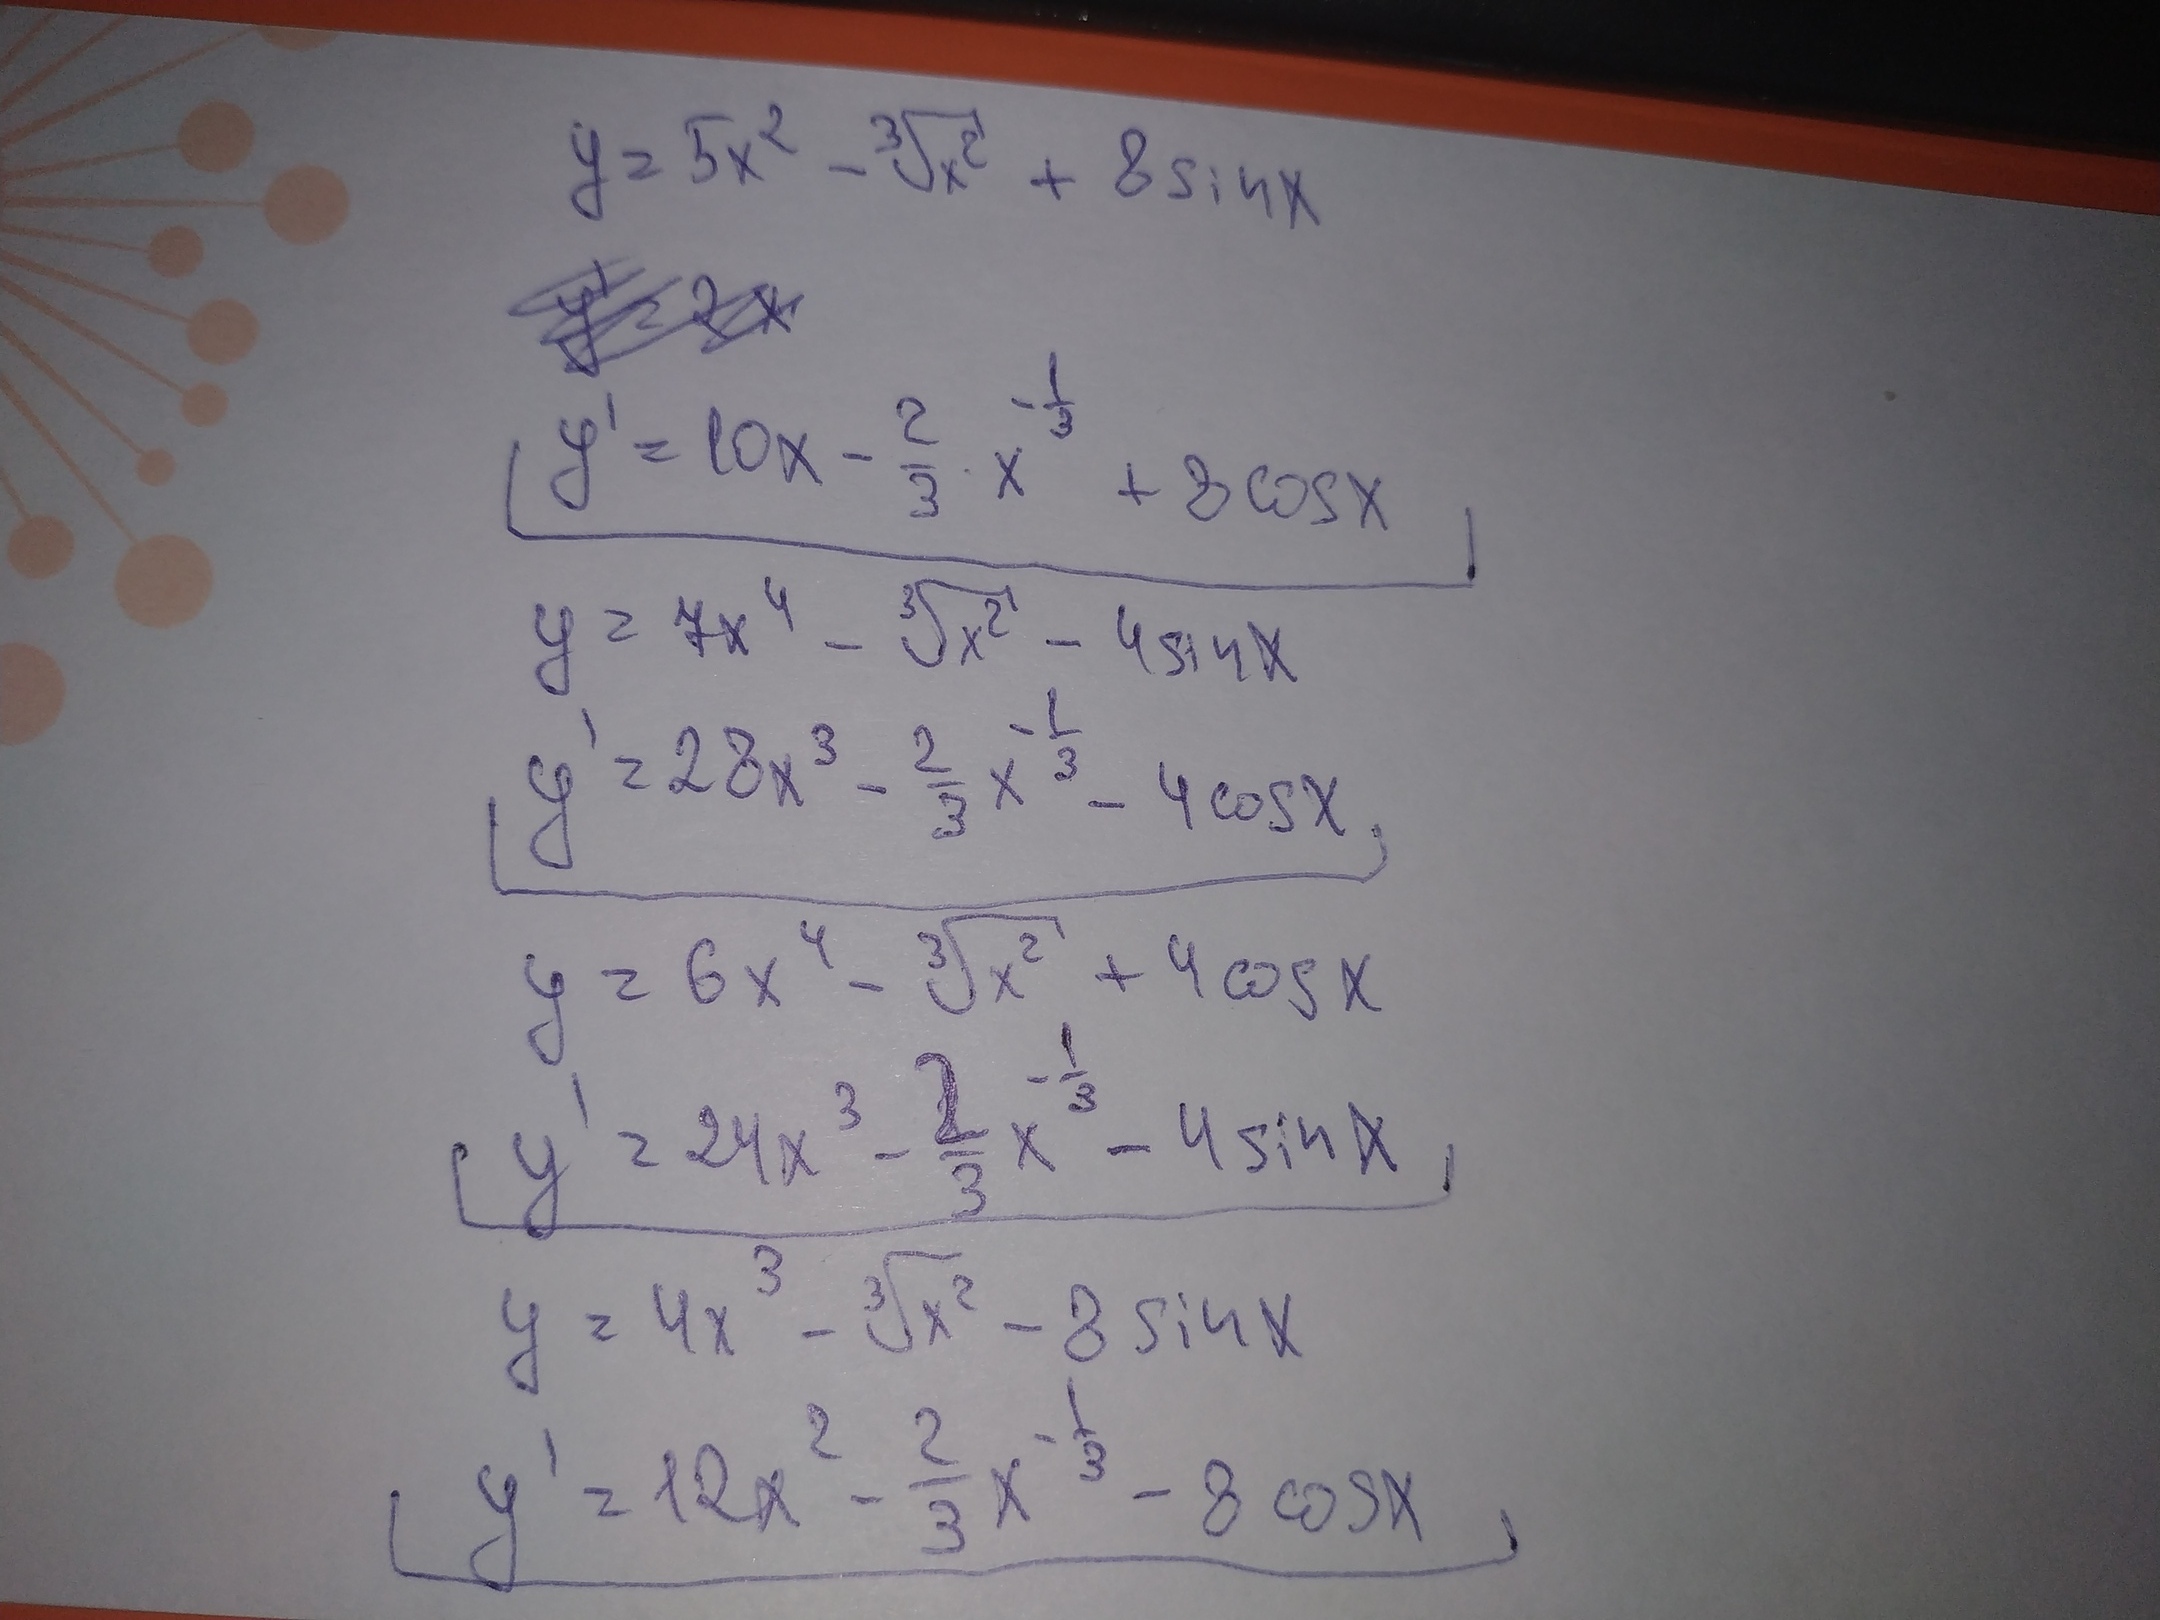 y = 5x² - ∛x² + 8sinx
y' = 2x
y' = 10x - 2/3 · x^(-1/3) + 8cosx
y = 7x⁴ - ∛x² - 4sinx
y' = 28x³ - 2/3 x^(-1/3) - 4cosx
y = 6x⁴ - ∛x² + 4cosx
y' = 24x³ - 2/3 x^(-1/3) - 4sinx
y = 4x³ - ∛x² - 8sinx
y' = 12x² - 2/3 x^(-1/3) - 8cosx